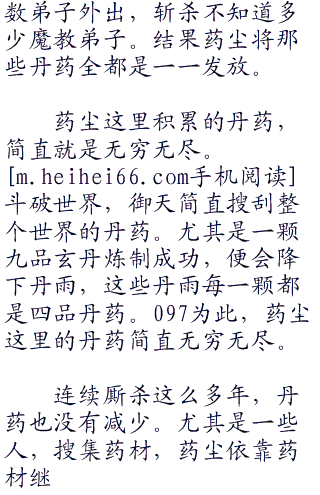 数弟子外出，斩杀不知道多
少魔教弟子。结果药尘将那
些丹药全都是一一发放。
药尘这里积累的丹药，
简直就是无穷无尽。
[m.heihei66.com手机阅读]
斗破世界，御天简直搜刮整
个世界的丹药。尤其是一颗
九品玄丹炼制成功，便会降
下丹雨，这些丹雨每一颗都
是四品丹药。097为此，药尘
这里的丹药简直无穷无尽。
连续厮杀这么多年，丹
药也没有减少。尤其是一些
人，搜集药材，药尘依靠药
材继